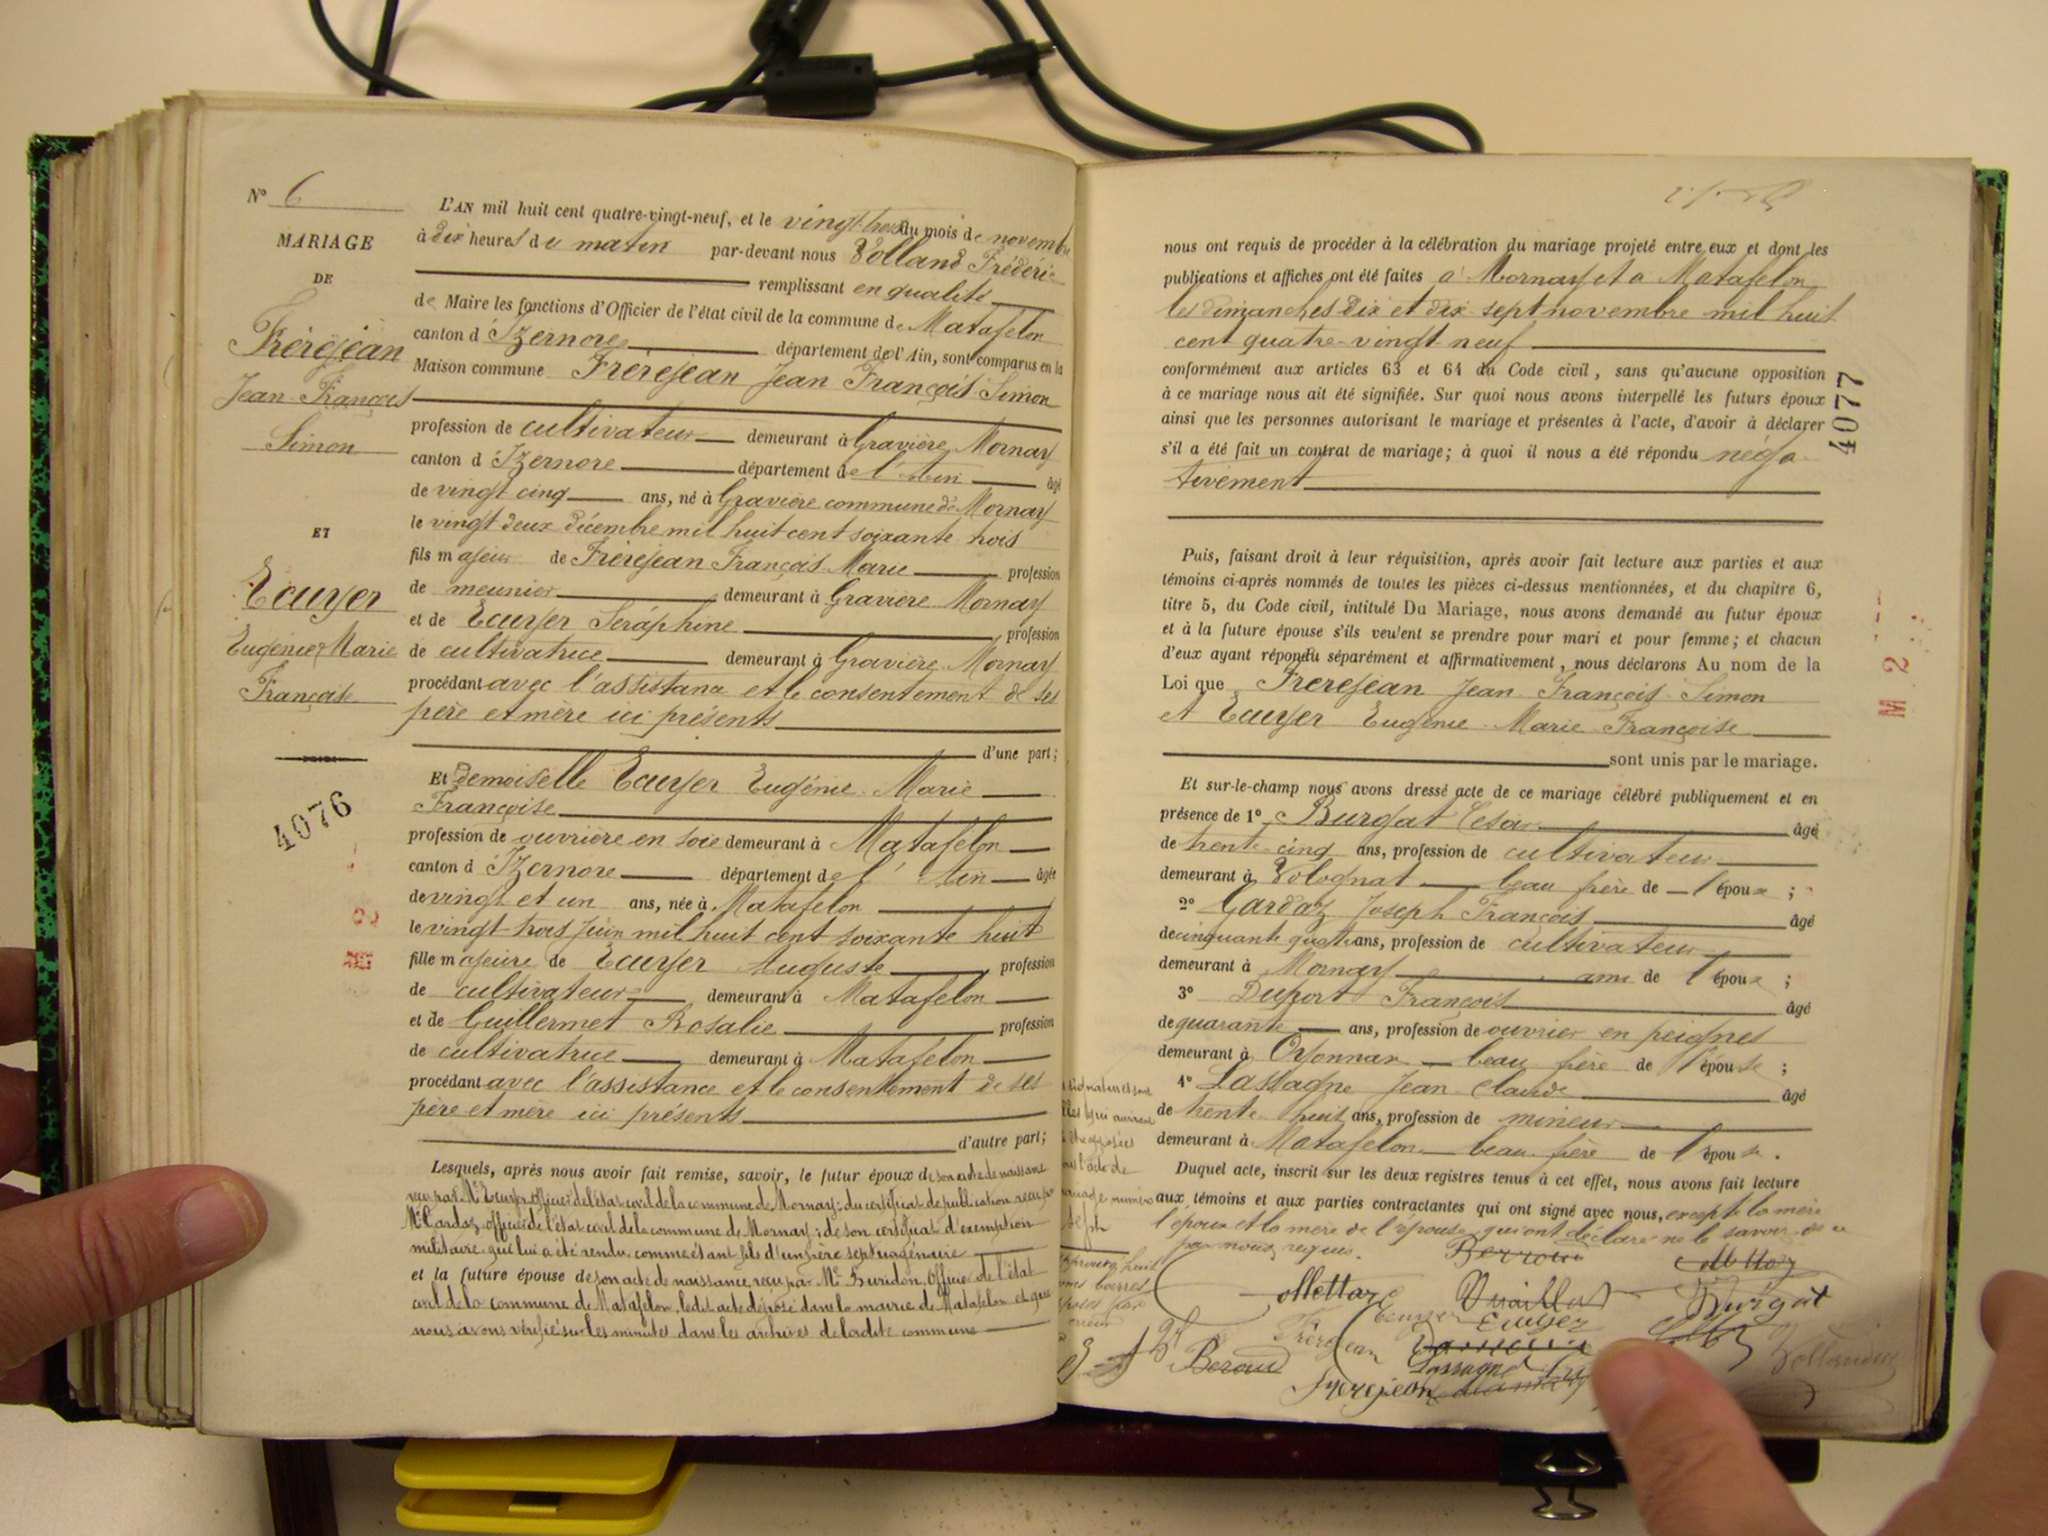 N° 6
MARIAGE
DE
Frèrejean
Jean François
Simon
ET
Ecuyer
Eugénie Marie
Françoise
4076
L'AN mil huit cent quatre-vingt-neuf, et le vingt trois du mois de novembre
à dix heures du matin par-devant nous Volland Frédéric
remplissant en qualité
de Maire les fonctions d'Officier de l'état civil de la commune de Matafelon
canton d'Izernore département de l'Ain, sont comparus en la
Maison commune Frèrejean Jean François Simon
profession de cultivateur demeurant à Gravière Mornay
canton d'Izernore département de l'Ain âgé
de vingt cinq ans, né à Gravière commune de Mornay
le vingt deux décembre mil huit cent soixante trois
fils majeur de Frèrejean François Marie profession
de meunier demeurant à Gravière Mornay
et de Ecuyer Séraphine profession
de cultivatrice demeurant à Gravière Mornay
procédant avec l'assistance et le consentement de ses
père et mère ici présents
d'une part;
Et demoiselle Ecuyer Eugénie Marie
Françoise
profession de ouvrière en soie demeurant à Matafelon
canton d'Izernore département de l'Ain âgée
de vingt et un ans, née à Matafelon
le vingt trois Juin mil huit cent soixante huit
fille majeure de Ecuyer Auguste profession
de cultivateur demeurant à Matafelon
et de Guillermet Rosalie profession
de cultivatrice demeurant à Matafelon
procédant avec l'assistance et le consentement de ses
père et mère ici présents
d'autre part;
Lesquels, après nous avoir fait remise, savoir, le futur époux de son acte de naissance
reçu par Mr Ecuyer officier de l'état civil de la commune de Mornay; du certificat de publication reçu par
Mr Gardaz officier de l'état civil de la commune de Mornay; de son certificat d'exemption
militaire qui lui a été rendu, comme étant fils d'un père septuagénaire
et la future épouse de son acte de naissance, reçu par Mr Buridon, Officier de l'état
civil de la commune de Matafelon, ledit acte déposé dans la mairie de Matafelon et que
nous avons vérifié sur les minutes dans les archives de ladite commune
nous ont requis de procéder à la célébration du mariage projeté entre eux et dont les
publications et affiches ont été faites à Mornay et à Matafelon
les dimanches dix et dix sept novembre mil huit
cent quatre-vingt neuf
conformément aux articles 63 et 64 du Code civil, sans qu'aucune opposition
à ce mariage nous ait été signifiée. Sur quoi nous avons interpellé les futurs époux
ainsi que les personnes autorisant le mariage et présentes à l'acte, d'avoir à déclarer
s'il a été fait un contrat de mariage; à quoi il nous a été répondu néga
tivement
4077
Puis, faisant droit à leur réquisition, après avoir fait lecture aux parties et aux
témoins ci-après nommés de toutes les pièces ci-dessus mentionnées, et du chapitre 6,
titre 5, du Code civil, intitulé Du Mariage, nous avons demandé au futur époux
et à la future épouse s'ils veulent se prendre pour mari et pour femme; et chacun
d'eux ayant répondu séparément et affirmativement, nous déclarons Au nom de la
Loi que Frèrejean Jean François Simon
et Ecuyer Eugénie Marie Françoise
sont unis par le mariage.
M 2
Et sur-le-champ nous avons dressé acte de ce mariage célébré publiquement et en
présence de 1° Burgat César âgé
de trente cinq ans, profession de cultivateur
demeurant à Volognat beau frère de l'époux;
2° Gardaz Joseph François âgé
de cinquante quatre ans, profession de cultivateur
demeurant à Mornay ami de l'époux;
3° Duport François âgé
de quarante ans, profession de ouvrier en peignes
demeurant à Oyonnax beau frère de l'épouse;
4° Lassagne Jean Claude âgé
de trente huit ans, profession de mineur
demeurant à Matafelon beau frère de l'épouse.
Duquel acte, inscrit sur les deux registres tenus à cet effet, nous avons fait lecture
aux témoins et aux parties contractantes qui ont signé avec nous, excepté la mère
l'époux et la mère de l'épouse, qui ont déclaré ne le savoir, de ce
par nous requis.
Burgat
Ecuyer
Frèrejean
Lassagne
Beroud
Frerejean